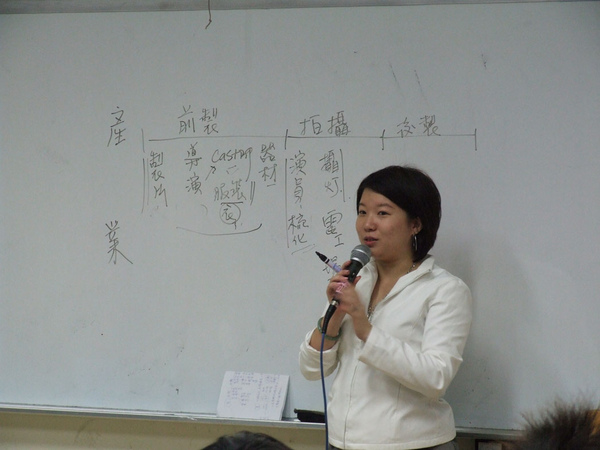 產業
前製
拍攝
後製
製片
導演
Casting
服裝
表
器材
演員
梳化
攝
灯
電工